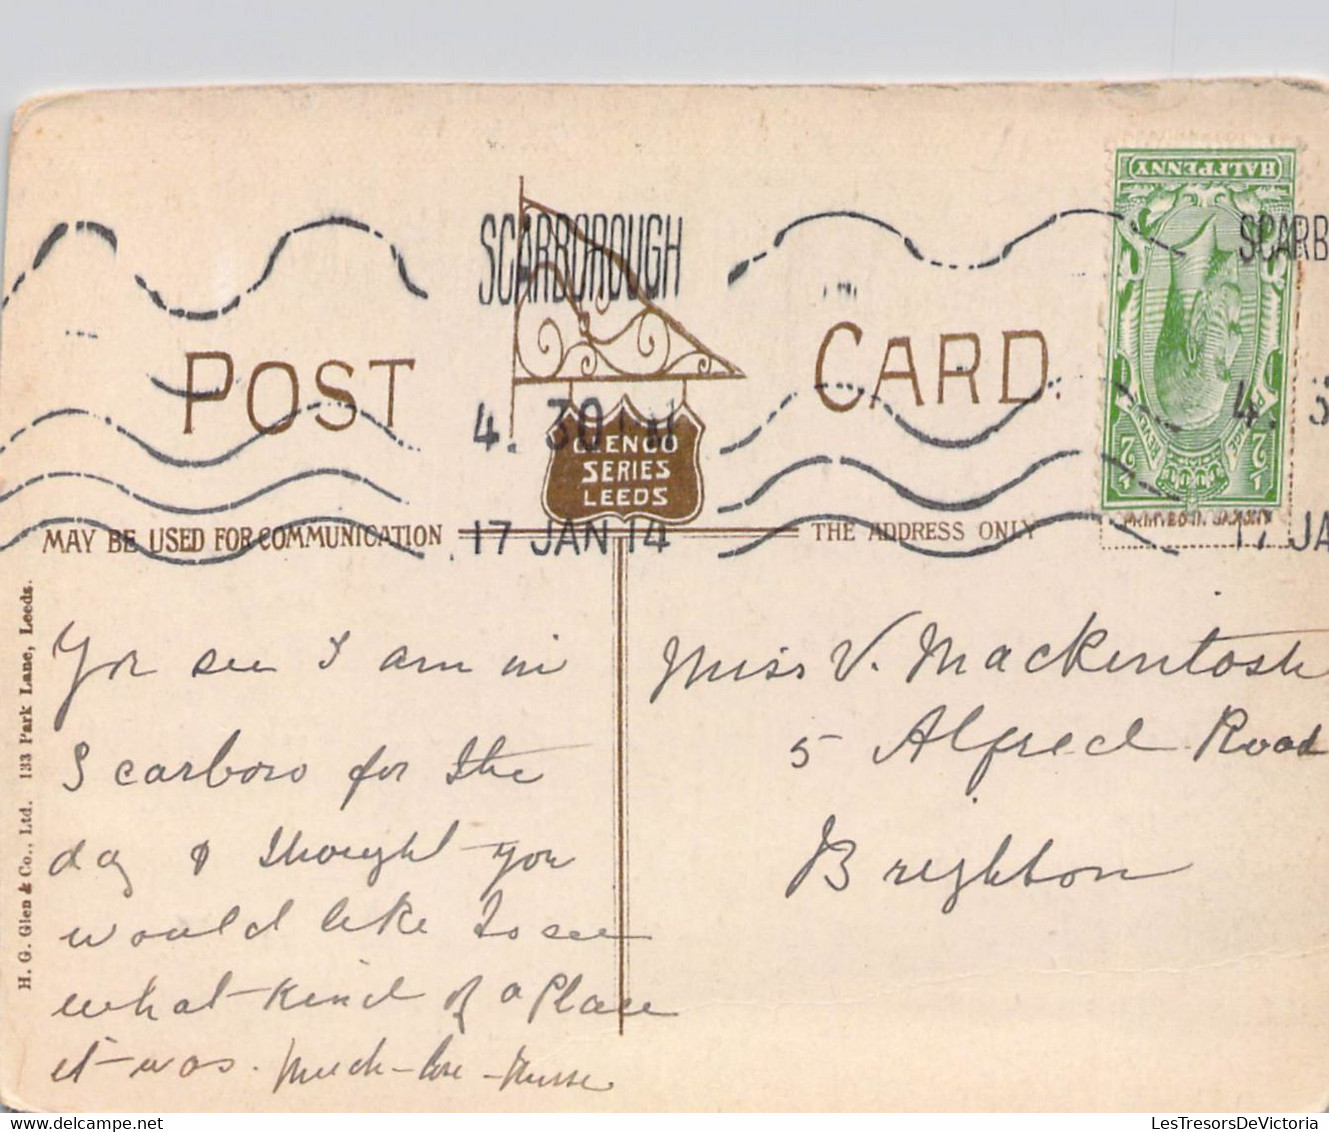 HALFPENNY
SCARBOROUGH
SCARB
POST CARD.
4. 30
4. 3
GLENCO
SERIES
LEEDS
17 JAN 14
17 JA
MAY BE USED FOR COMMUNICATION
THE ADDRESS ONLY
H. G. Glen & Co., Ltd. 133 Park Lane, Leeds.
You see I am in
Scarboro for the
day & thought you
would like to see
what kind of a Place
it was. Much love Nurse
Miss V. Mackintosh
5 Alfred Road
Brighton
LesTresorsDeVictoria